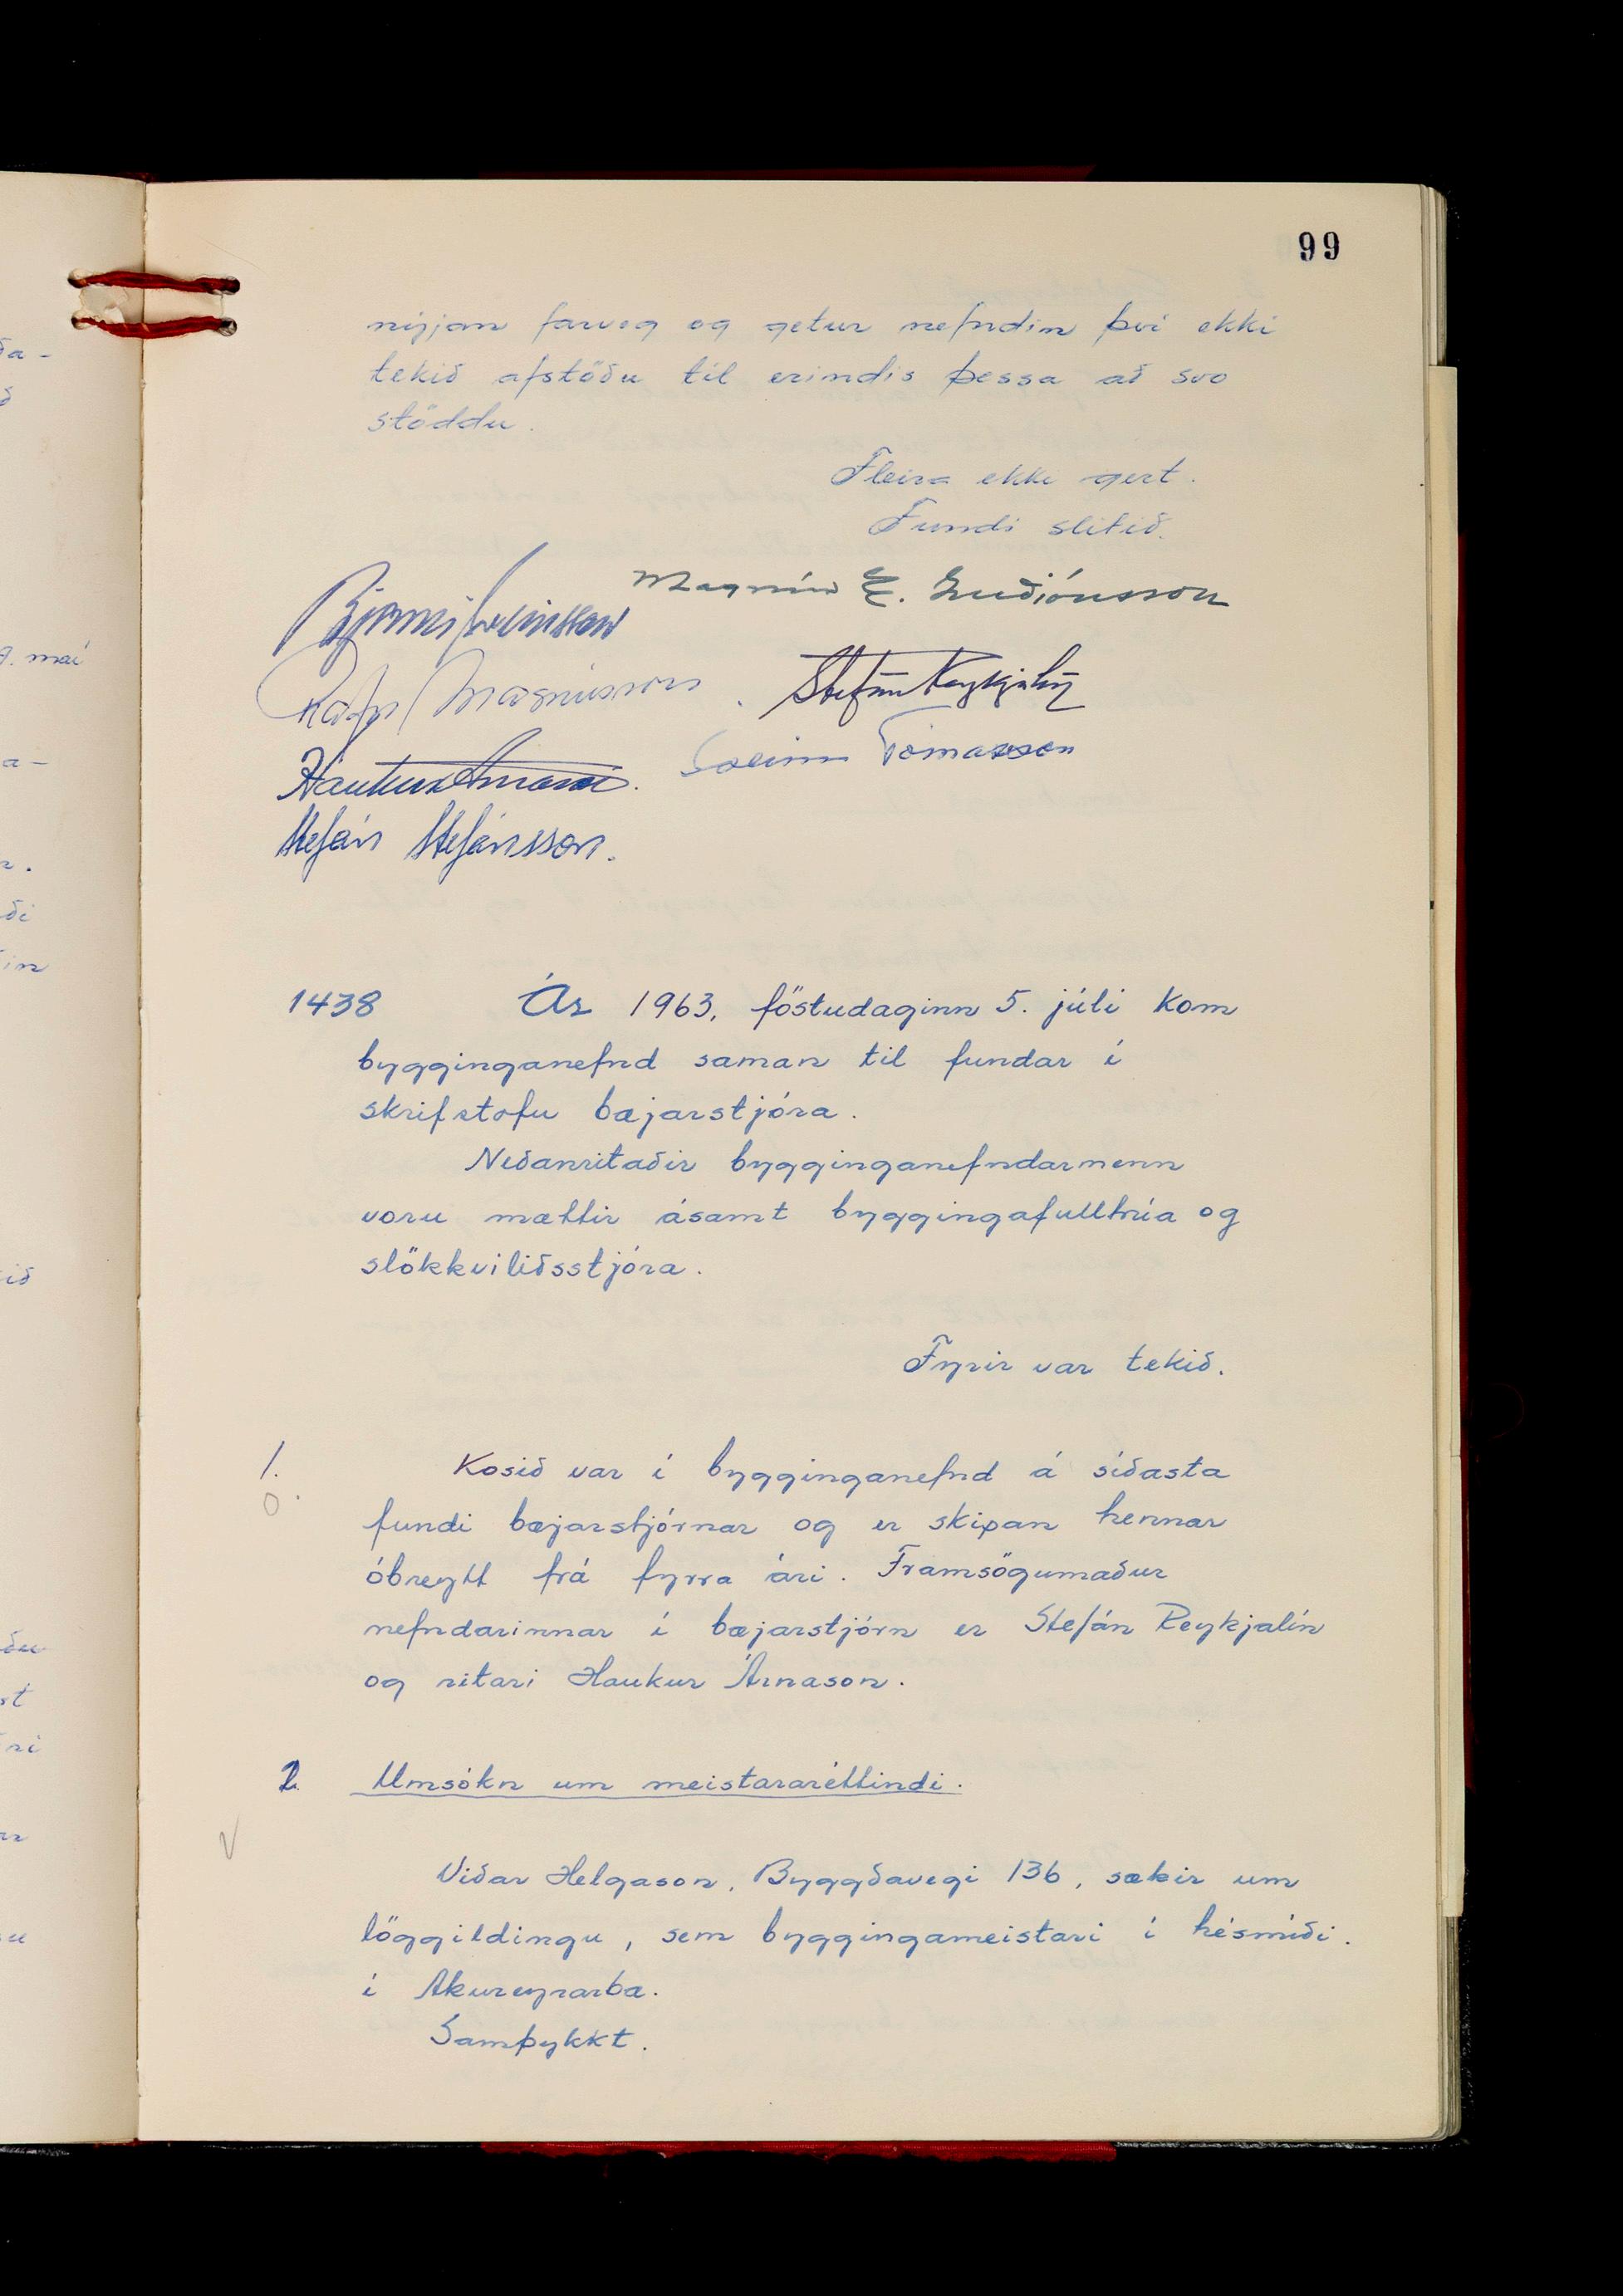 99
nýjan farveg og getur nefndin því ekki
tekið afstöðu til erindis þessa að svo
stöddu.
Fleira ekki gert.
Fundi slitið.
Magnús E. Guðjónsson
Bjarni Sveinsson
Stefán Reykjalín
Magnússon
Sveinn Tómasson
Haukur Árnason.
Stefán Stefánsson.
1438 Ár 1963, föstudaginn 5. júlí kom
bygginganefnd saman til fundar í
skrifstofu bæjarstjóra.
Neðanritaðir bygginganefndarmenn
voru mættir ásamt byggingafulltrúa og
slökkviliðsstjóra.
Fyrir var tekið.
1. Kosið var í bygginganefnd á síðasta
fundi bæjarstjórnar og er skipan hennar
óbreytt frá fyrra ári. Framsögumaður
nefndarinnar í bæjarstjórn er Stefán Reykjalín
og ritari Haukur Árnason.
2. Umsókn um meistararéttindi.
Viðar Helgason, Byggðavegi 136, sækir um
löggildingu, sem byggingameistari í hésmíði.
í Akureyrarbæ.
Samþykkt.